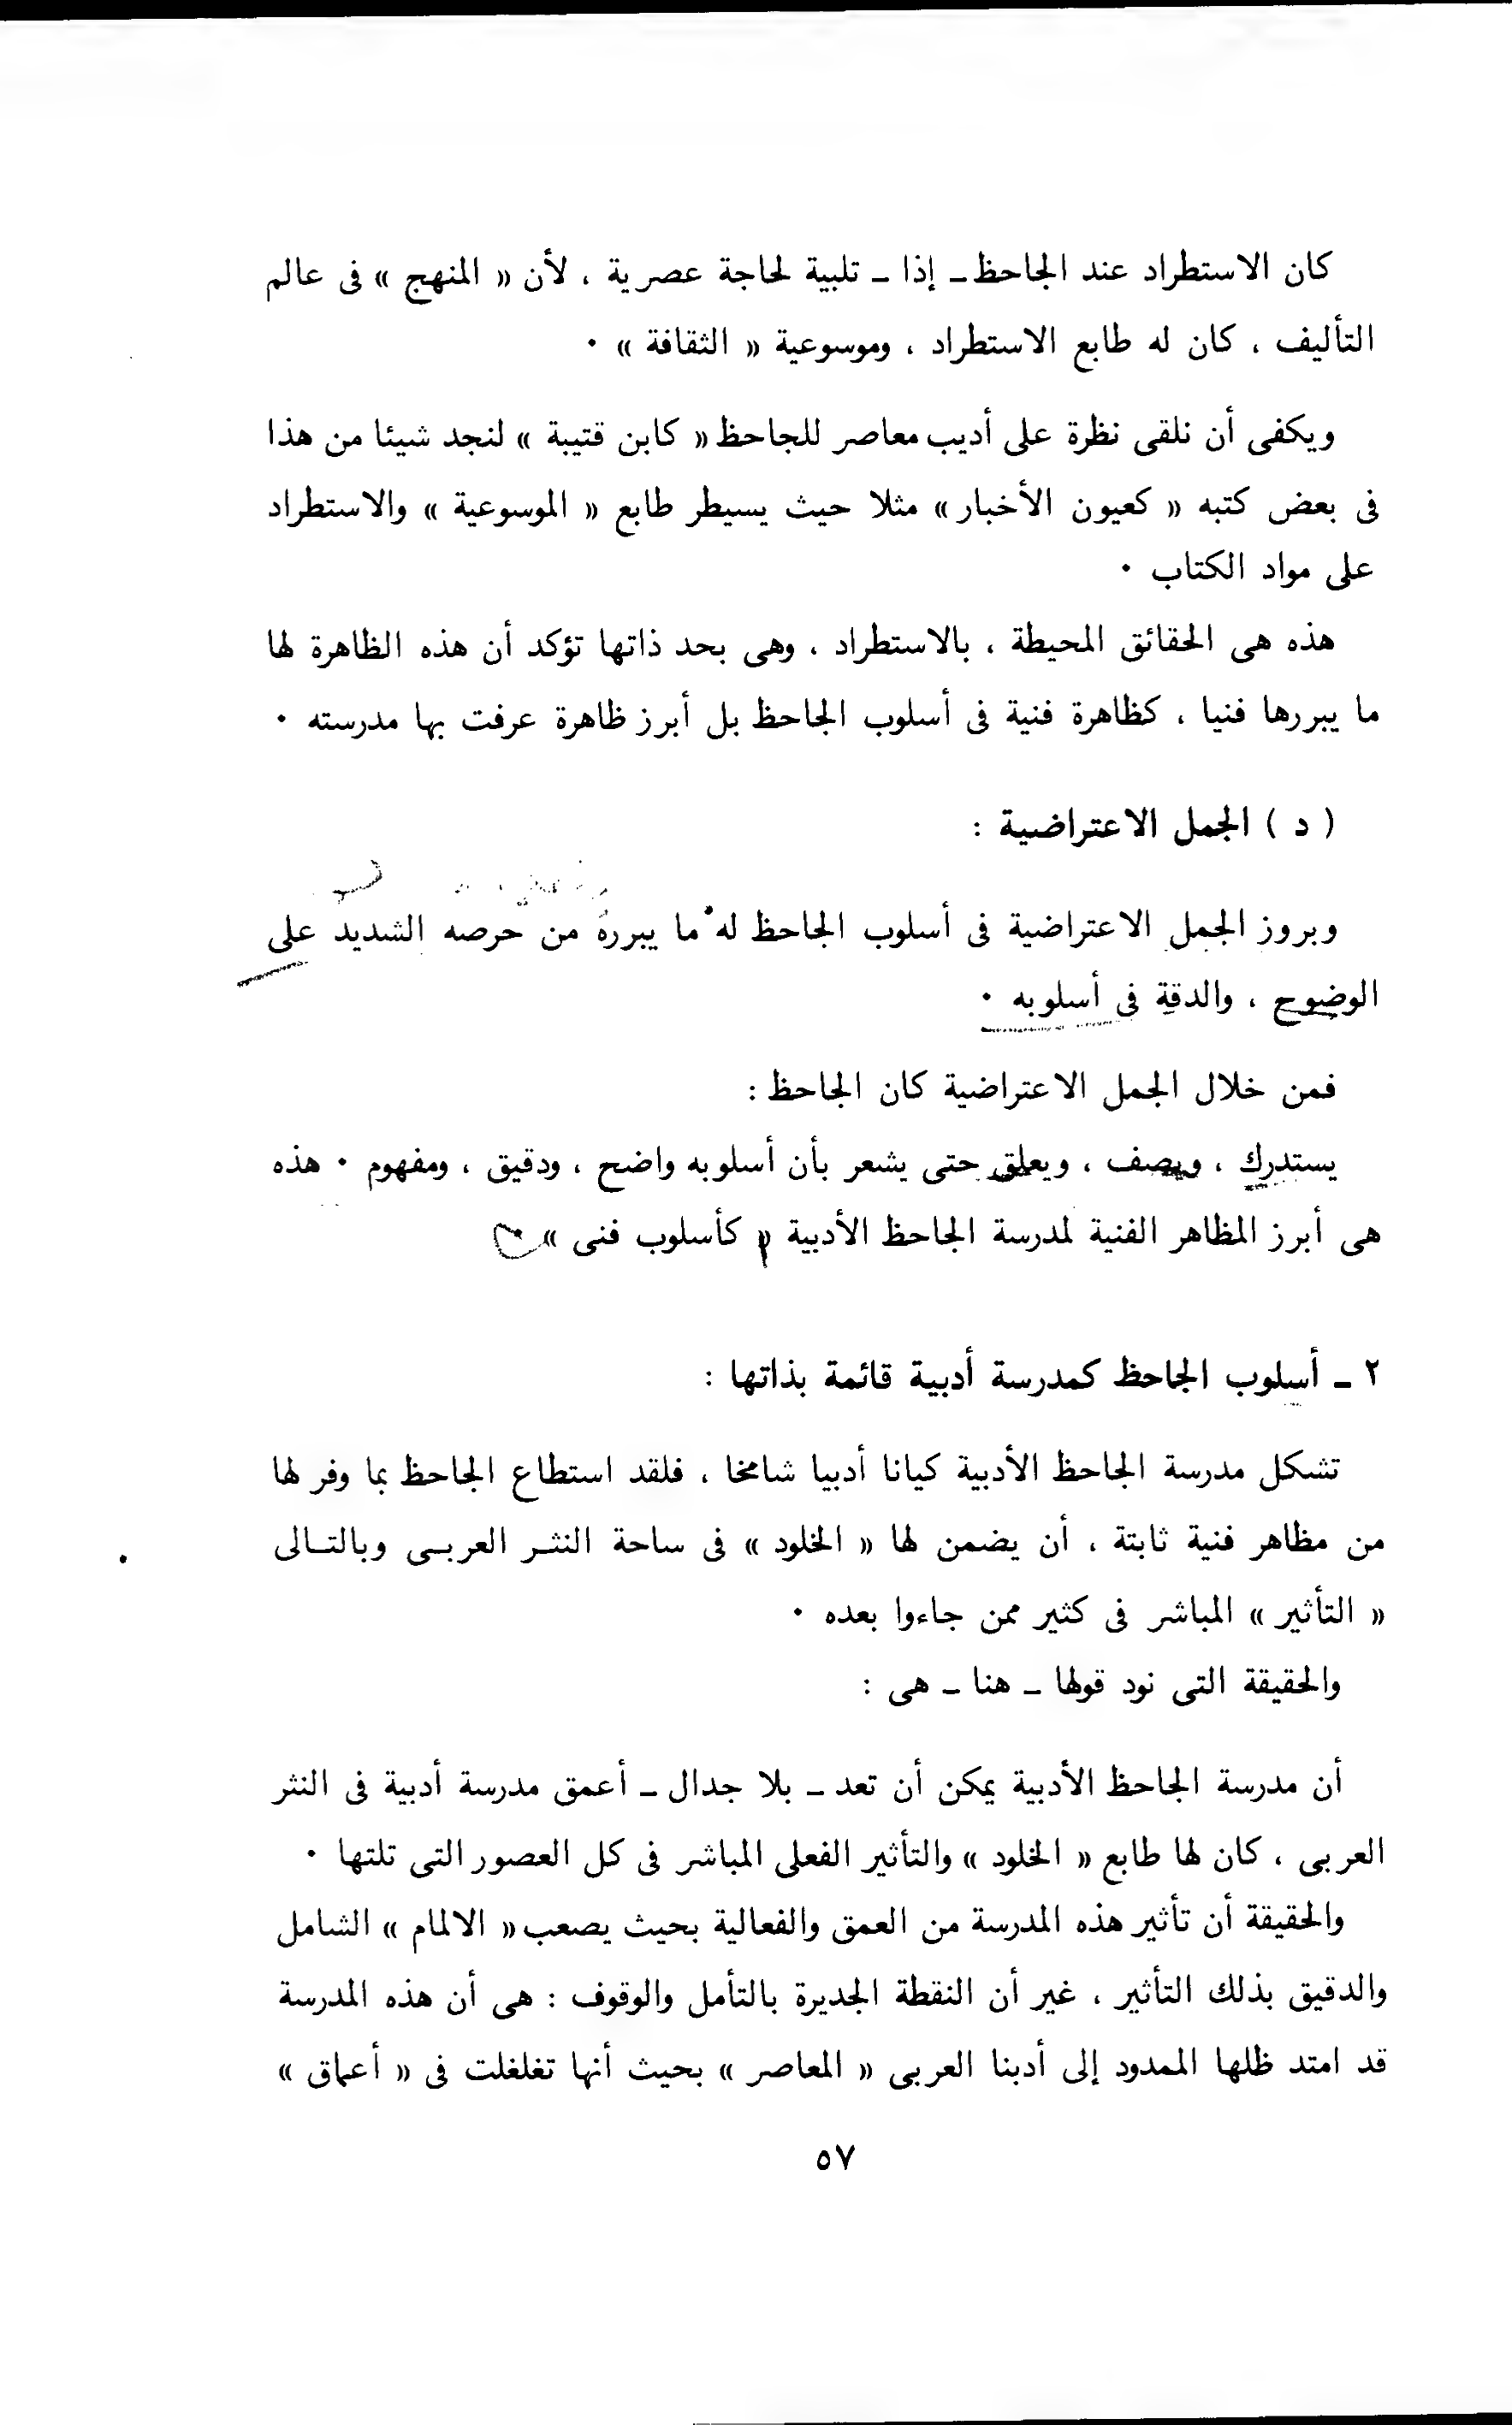 كان الاستطراد عند الجاحظ ــ إذا ــ تلبية لحاجة عصرية ، لأن « المنهج » فى عالم
التأليف ، كان له طابع الاستطراد ، وموسوعية « الثقافة » ٠
ويكفى أن نلقى نظرة على أديب معاصر للجاحظ « كابن قتيبة » لنجد شيئا من هذا
فى بعض كتبه « كعيون الأخبار » مثلا حيث يسيطر طابع « الموسوعية » والاستطراد
على مواد الكتاب ٠
هذه هى الحقائق المحيطة ، بالاستطراد ، وهى بحد ذاتها تؤكد أن هذه الظاهرة لها
ما يبررها فنيا ، كظاهرة فنية فى أسلوب الجاحظ بل أبرز ظاهرة عرفت بها مدرسته ٠
( د ) الجمل الاعتراضية :
وبروز الجمل الاعتراضية فى أسلوب الجاحظ له ما يبرره من حرصه الشديد على
الوضوح ، والدقة فى أسلوبه ٠
فمن خلال الجمل الاعتراضية كان الجاحظ :
يستدرك ، ويصف ، ويعلق حتى يشعر بأن أسلوبه واضح ، ودقيق ، ومفهوم ٠ هذه
هى أبرز المظاهر الفنية لمدرسة الجاحظ الأدبية « كأسلوب فنى » ٠
٢ ــ أسلوب الجاحظ كمدرسة أدبية قائمة بذاتها :
تشكل مدرسة الجاحظ الأدبية كيانا أدبيا شامخا ، فلقد استطاع الجاحظ بما وفر لها
من مظاهر فنية ثابتة ، أن يضمن لها « الخلود » فى ساحة النثـر العربـى وبالتـالى
« التأثير » المباشر فى كثير ممن جاءوا بعده ٠
والحقيقة التى نود قولها ــ هنا ــ هى :
أن مدرسة الجاحظ الأدبية يمكن أن تعد ــ بلا جدال ــ أعمق مدرسة أدبية فى النثر
العربى ، كان لها طابع « الخلود » والتأثير الفعلى المباشر فى كل العصور التى تلتها ٠
والحقيقة أن تأثير هذه المدرسة من العمق والفعالية بحيث يصعب « الالمام » الشامل
والدقيق بذلك التأثير ، غير أن النقطة الجديرة بالتأمل والوقوف : هى أن هذه المدرسة
قد امتد ظلها الممدود إلى أدبنا العربى « المعاصر » بحيث أنها تغلغلت فى « أعماق »
٥٧